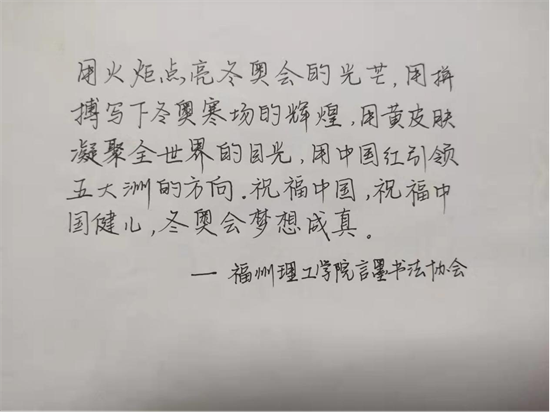 用火炬点亮冬奥会的光芒,用拼
搏写下冬奥寒场的辉煌,用黄皮肤
凝聚全世界的目光,用中国红引领
五大洲的方向.祝福中国,祝福中
国健儿,冬奥会梦想成真。
一福州理工学院言墨书法协会